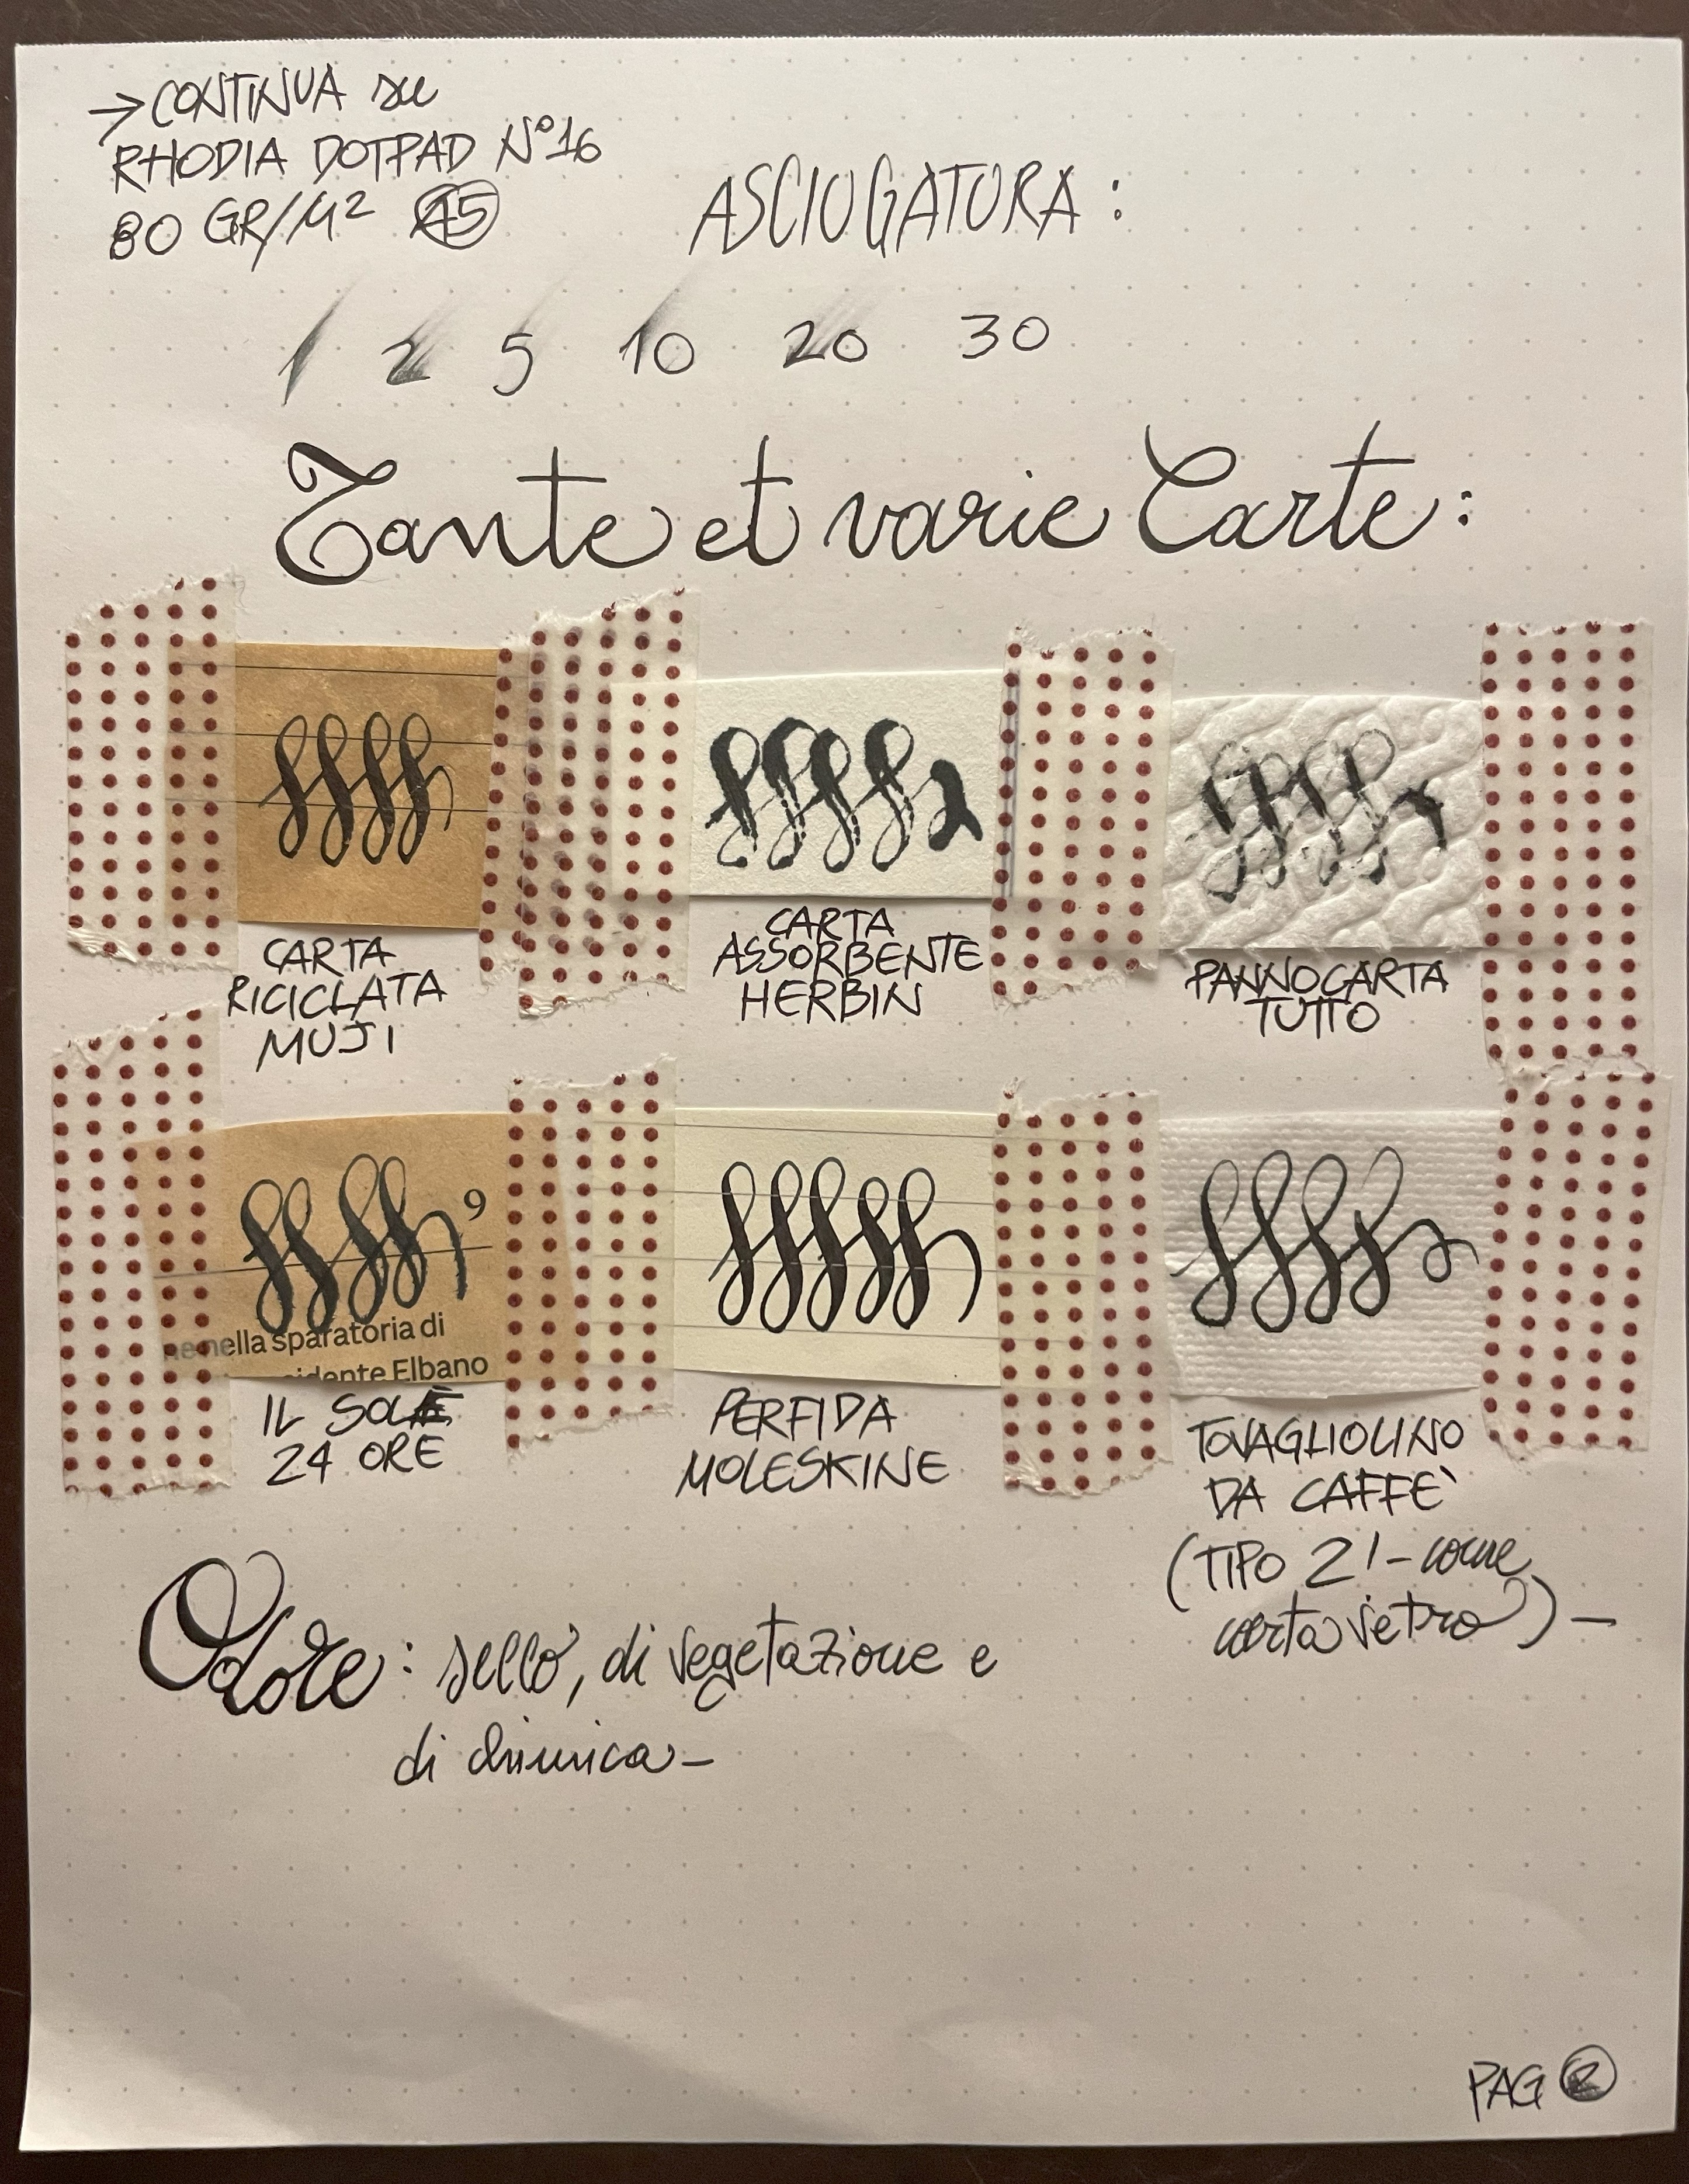 → CONTINUA su
RHODIA DOTPAD N°16
80 GR/M² A5
ASCIUGATURA :
1 2 5 10 20 30
Tante et varie Carte :
CARTA
RICICLATA
MUJI
CARTA
ASSORBENTE
HERBIN
PANNOCARTA
TUTTO
9
nella sparatoria di
Elbano
IL SOLE
24 ORE
PERFIDA
MOLESKINE
TOVAGLIOLINO
DA CAFFE`
(TIPO 21 - come
carta vetro) –
Odore : sellò, di vegetazione e
di chimica –
PAG 2